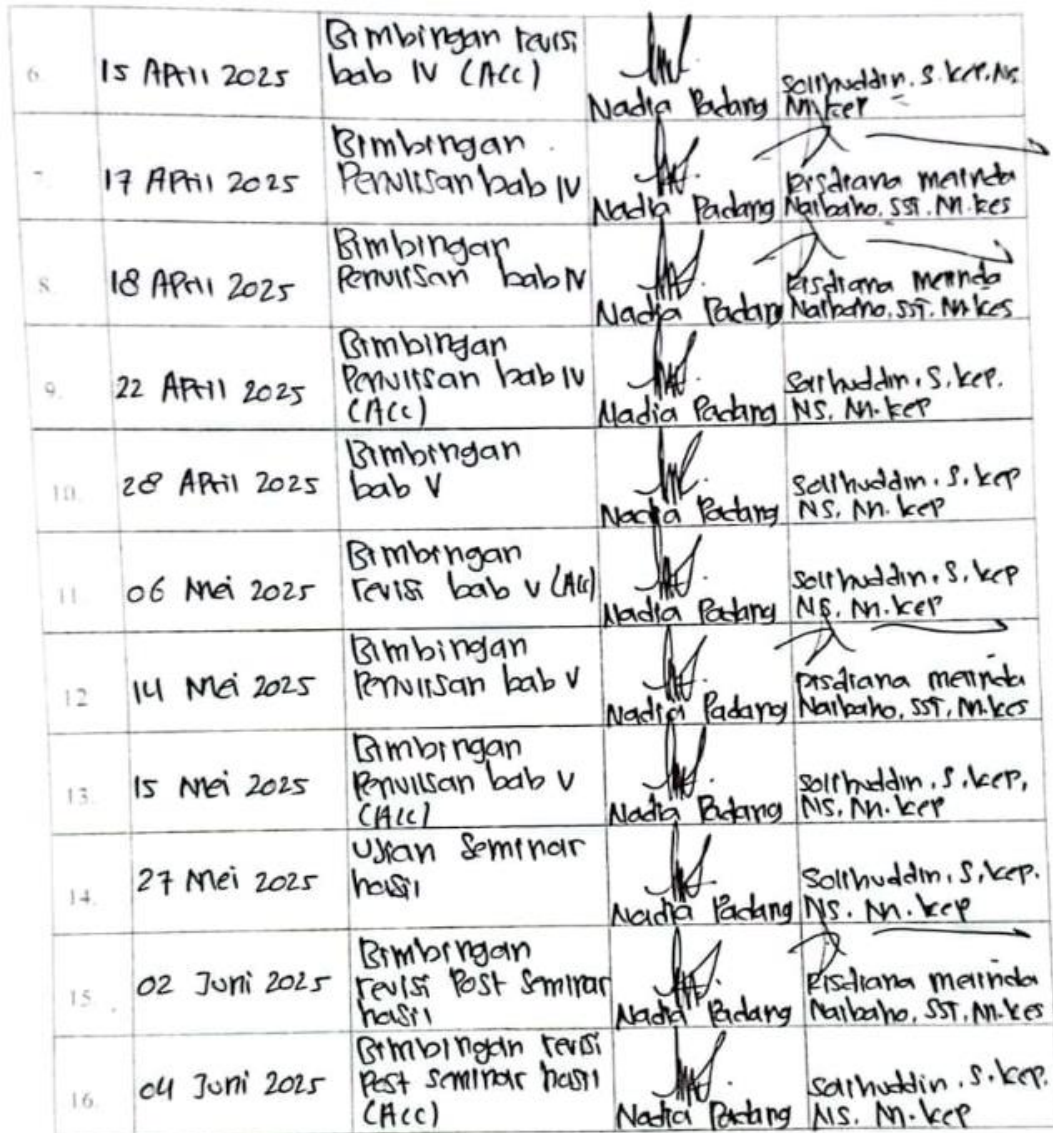 6. 15 April 2025 Bimbingan revisi
bab IV (Acc)
Nadia Padang
Solihuddin. S. kep. Ns
M.kep
7. 17 April 2025 Bimbingan
Penulisan bab IV
Nadia Padang
Risdiana melinda
Naibaho. SST. M.kes
8. 18 April 2025 Bimbingan
Penulisan bab IV
Nadia Padang
Risdiana melinda
Naibaho. SST. M.kes
9. 22 April 2025 Bimbingan
Penulisan bab IV
(Acc)
Nadia Padang
Solihuddin. S. kep.
NS. M.kep
10. 28 April 2025 Bimbingan
bab V
Nadia Padang
Solihuddin. S. kep
NS. M. kep
11. 06 Mei 2025 Bimbingan
revisi bab V (Acc)
Nadia Padang
Solihuddin. S. kep
NS. M. kep
12 14 Mei 2025 Bimbingan
Penulisan bab V
Nadia Padang
Risdiana melinda
Naibaho, SST, M.kes
13. 15 Mei 2025 Bimbingan
Penulisan bab V
(Acc)
Nadia Padang
Solihuddin. S. kep,
NS. M. kep
14. 27 Mei 2025 Ujian Seminar
hasil
Nadia Padang
Solihuddin. S. kep.
NS. M. kep
15. 02 Juni 2025 Bimbingan
revisi Post Seminar
hasil
Nadia Padang
Risdiana melinda
Naibaho, SST, M.kes
16. 04 Juni 2025 Bimbingan revisi
Post seminar hasil
(Acc)
Nadia Padang
Solihuddin. S. kep.
NS. M. kep